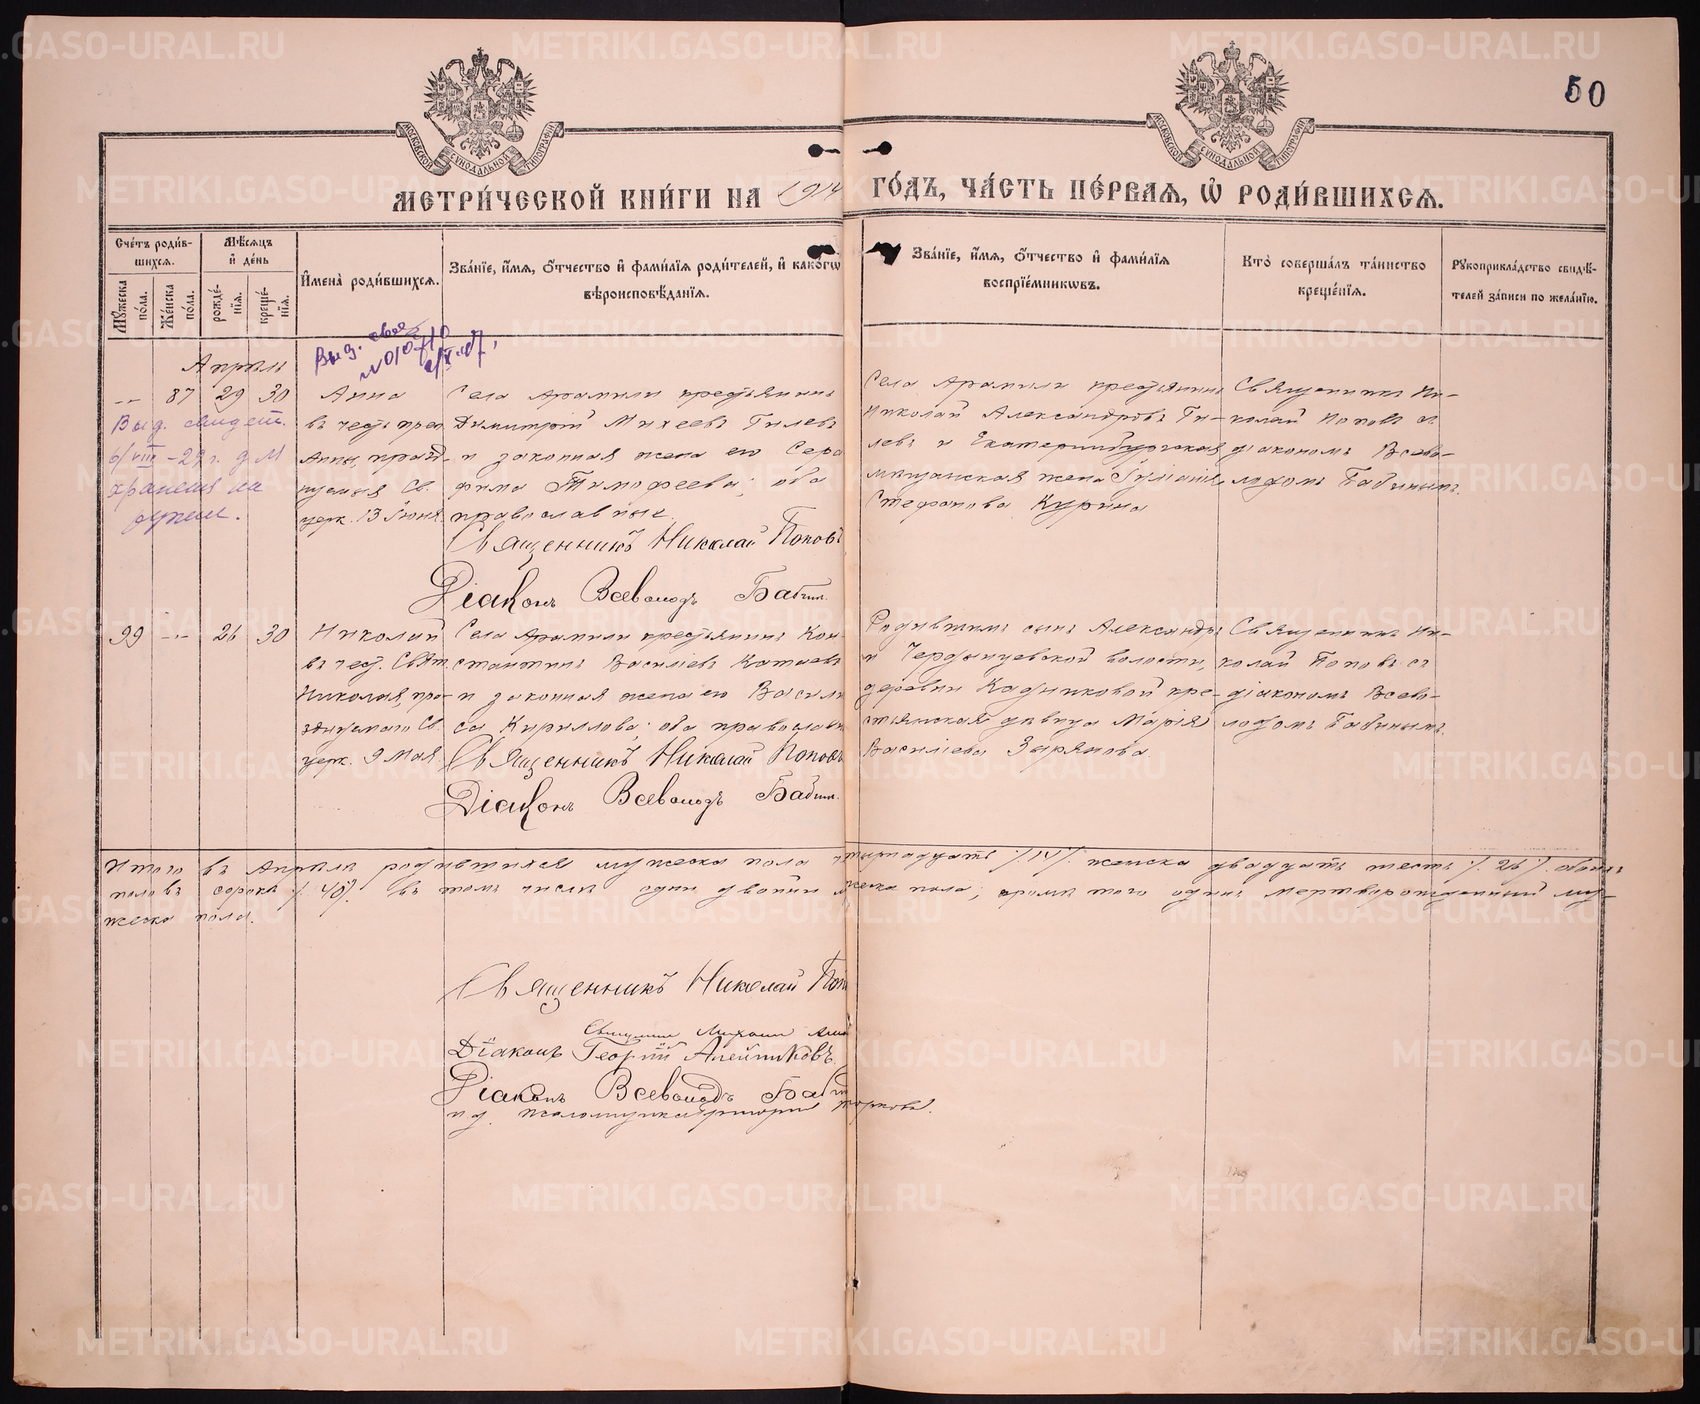 50
МОСКОВСКОЙ СѴНОДАЛЬНОЙ ТИПОГРАФІИ
МОСКОВСКОЙ СѴНОДАЛЬНОЙ ТИПОГРАФІИ
МЕТРИ́ЧЕСКОЙ КНИ́ГИ НА 1914 ГО́ДЪ, ЧА́СТЬ ПЕ́РВАѦ, Ѽ РОДИ́ВШИХСѦ.
Сче́тъ роди́в-
шихсѧ.
Мꙋ́жеска по́ла.
Же́нска по́ла.
Мѣ́сѧцъ
и҆ де́нь
рожде́-
нїѧ.
креще́-
нїѧ.
И҆мена̀ роди́вшихсѧ.
Зва́нїе, и҆́мѧ, ѻ҆́тчество и҆ фами́лїѧ роди́телей, и҆ како́гѡ
вѣроисповѣ́данїѧ.
Зва́нїе, и҆́мѧ, ѻ҆́тчество и҆ фами́лїѧ
воспрїе́мникѡвъ.
Кто̀ соверша́лъ та́инство
креще́нїѧ.
Рꙋкоприкла́дство свидѣ́-
телей за́писи по жела́нїю.
Выд. свид
№ 010710
Апрѣль
87 29 30
Выд. свидет.
6/VIII - 29 г. д. М
Анна
въ честь преп
Анны, празд-
нуемыя Св.
церк. 13 Іюня
Села Арамили крестьянинъ
Димитрій Михеевъ Гилевъ
и законная жена его Сера
фима Тимофеева; оба
православные.
Священникъ Николай Поповъ
Діаконъ Всеволодъ Бабин.
Села Арамили крестьянинъ
Николай Александровъ Ги-
левъ и Екатеринбургская
мѣщанская жена Іуліанія
Стефанова Курина
Священникъ Ни-
колай Поповъ съ
діакономъ Всево-
лодомъ Бабинымъ.
99 26 30
Николай
въ чест. Свят
Николая, пра-
зднуемаго Св.
церк. 9 Мая
Села Арамили крестьянинъ Кон-
стантинъ Василіевъ Катаевъ
и законная жена его Васили
са Кириллова; оба православн
Священникъ Николай Поповъ
Діаконъ Всеволодъ Бабин.
Родившимъ сынъ Александръ
и Чердынцевской волости,
деревни Кадниковой кре-
стьянская дѣвица Марія
Василіева Зырянова.
Священникъ Ни-
колай Поповъ съ
діакономъ Всево-
лодомъ Бабинымъ.
Итого въ Апрѣлѣ родившихся мужеска пола четырнадцать /14/. женска двадцать шесть /26/. обоихъ
половъ сорокъ /40/. въ томъ числѣ одни двойни женска пола; кромѣ того одинъ мертворожденный му-
жеска пола.
Священникъ Николай Поп
Священникъ Михаил
Діаконъ Георгій Алейниковъ
Діаконъ Всеволодъ Бабин
и д. псаломщика Григорій
METRIKI.GASO-URAL.RU